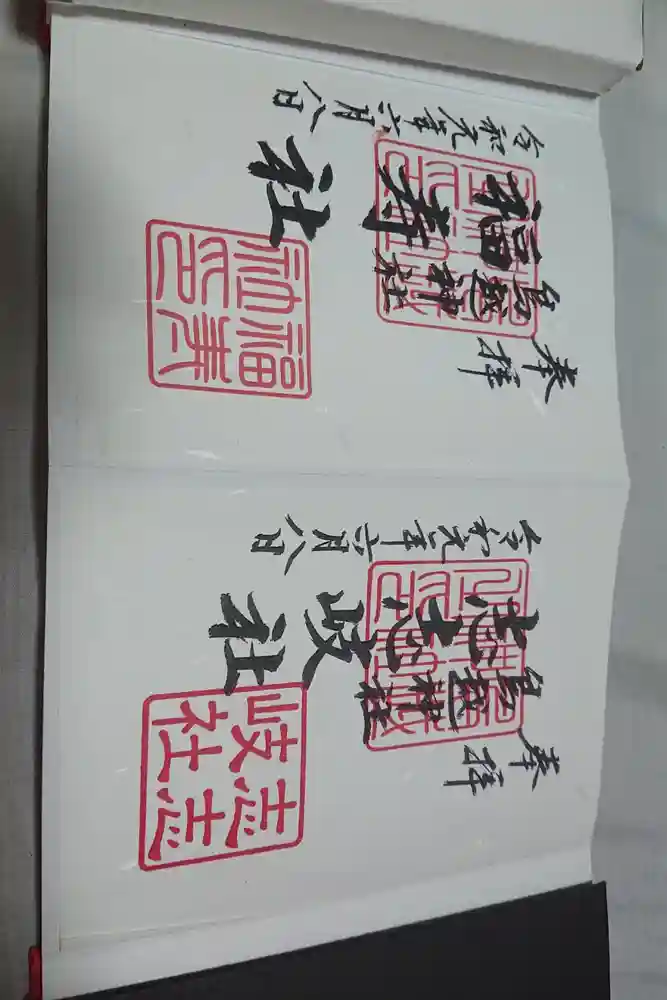 奉拝
鳥越神社
志志岐社
令和元年六月八日
志志
岐社
奉拝
鳥越神社
福寿社
令和元年六月八日
福寿
神印